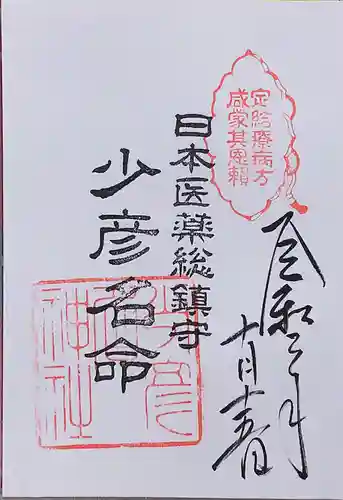 定給療病方
咸蒙其恩頼
日本医薬総鎮守
少彦名命
少彦
神社
令和二年
十月十五日